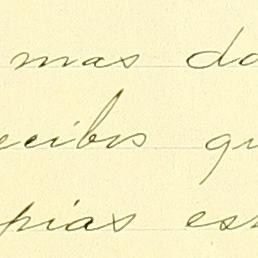 mas da
ecibos qu
pias es